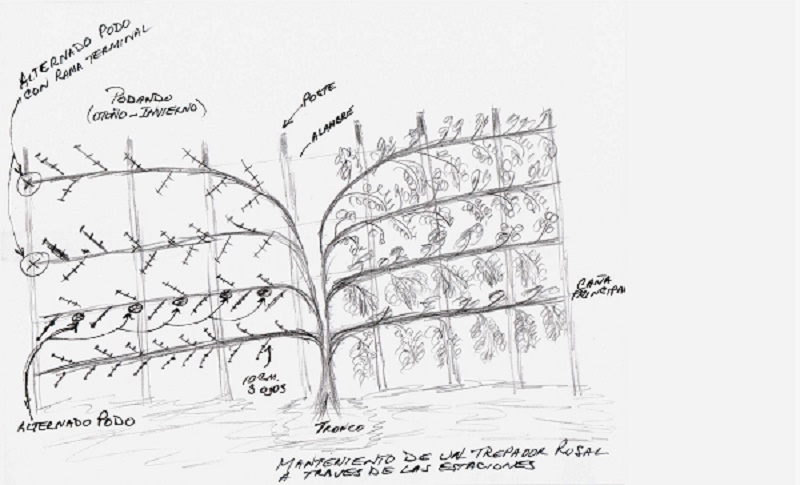 ALTERNADO PODO
CON RAMA TERMINAL
PODANDO
(OTOÑO-INVIERNO)
POSTE
ALAMBRE
CAÑA
PRINCIPAL
10 CM.
3 OJOS
ALTERNADO PODO
TRONCO
MANTENIENTO DE UN TREPADOR ROSAL
A TRAVES DE LAS ESTACIONES